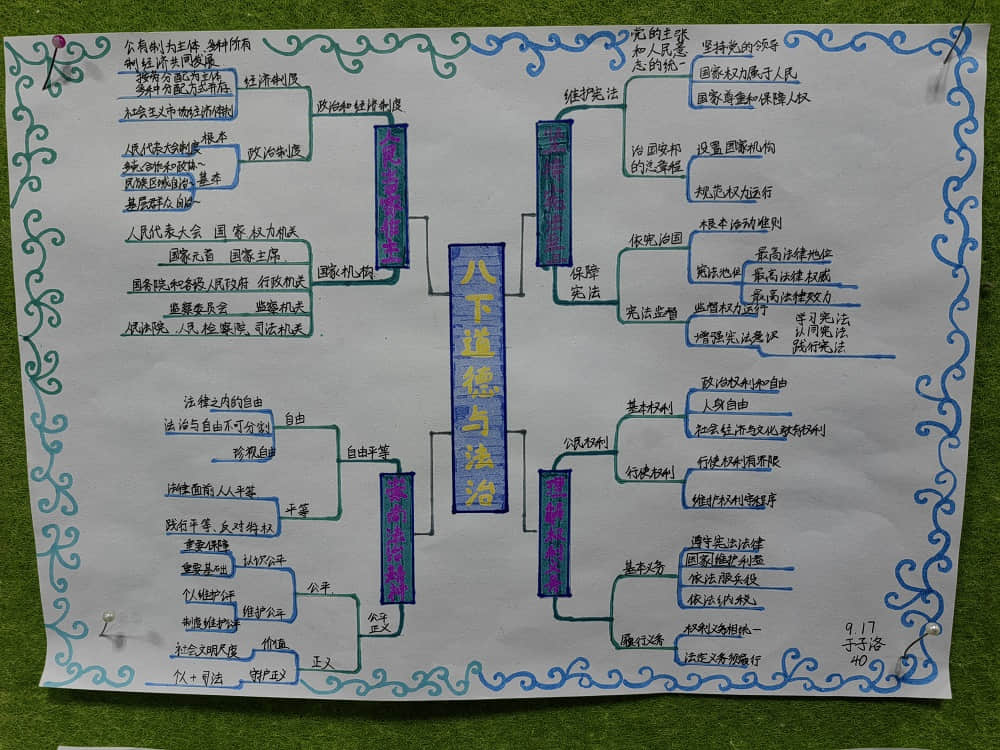 八下道德与法治
人民当家作主
政治和经济制度
经济制度
公有制为主体、多种所有
制经济共同发展
按劳分配为主体
多种分配方式并存
社会主义市场经济体制
政治制度
根本
人民代表大会制度
基本
多党合作和政协~
民族区域自治~
基层群众自治~
国家机构
人民代表大会 国家权力机关
国家元首 国家主席
国务院和各级人民政府 行政机关
监察委员会 监察机关
人民检察院 司法机关
维护宪法
党的主张
和人民意
志的统一
坚持党的领导
国家权力属于人民
国家尊重和保障人权
治国安邦
的总章程
设置国家机构
规范权力运行
保障
宪法
依宪治国
根本活动准则
宪法地位
最高法律地位
最高法律权威
最高法律效力
宪法监督
监督权力运行
增强宪法意识
学习宪法
认同宪法
践行宪法
崇尚法治精神
自由平等
自由
法律之内的自由
法治与自由不可分割
珍视自由
平等
法律面前人人平等
践行平等、反对特权
公平
正义
公平
认识公平
重要保障
重要基础
维护公平
个人维护公平
制度维护公平
正义
价值
社会文明尺度
守护正义
个人+司法
理解权利义务
公民权利
基本权利
政治权利和自由
人身自由
社会经济与文化教育权利
行使权利
行使权利有界限
维护权利守程序
基本义务
遵守宪法法律
国家维护利益
依法服兵役
依法纳税
履行义务
权利义务相统一
法定义务须履行
9.17
于子洛
40